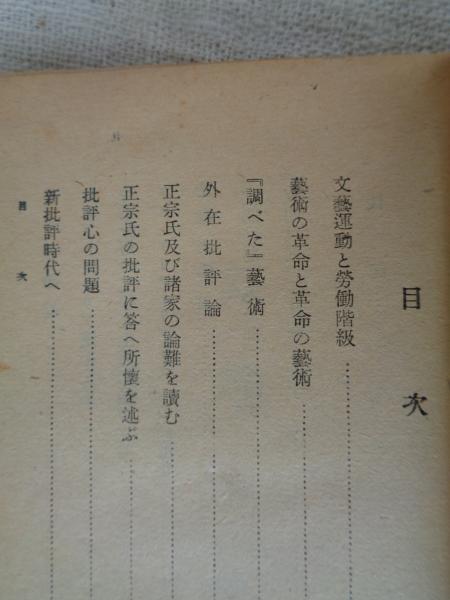 目次
文藝運動と勞働階級
藝術の革命と革命の藝術
『調べた』藝術
外在批評論
正宗氏及び諸家の論難を讀む
正宗氏の批評に答へ所懷を述ぶ
批評心の問題
新批評時代へ
目次